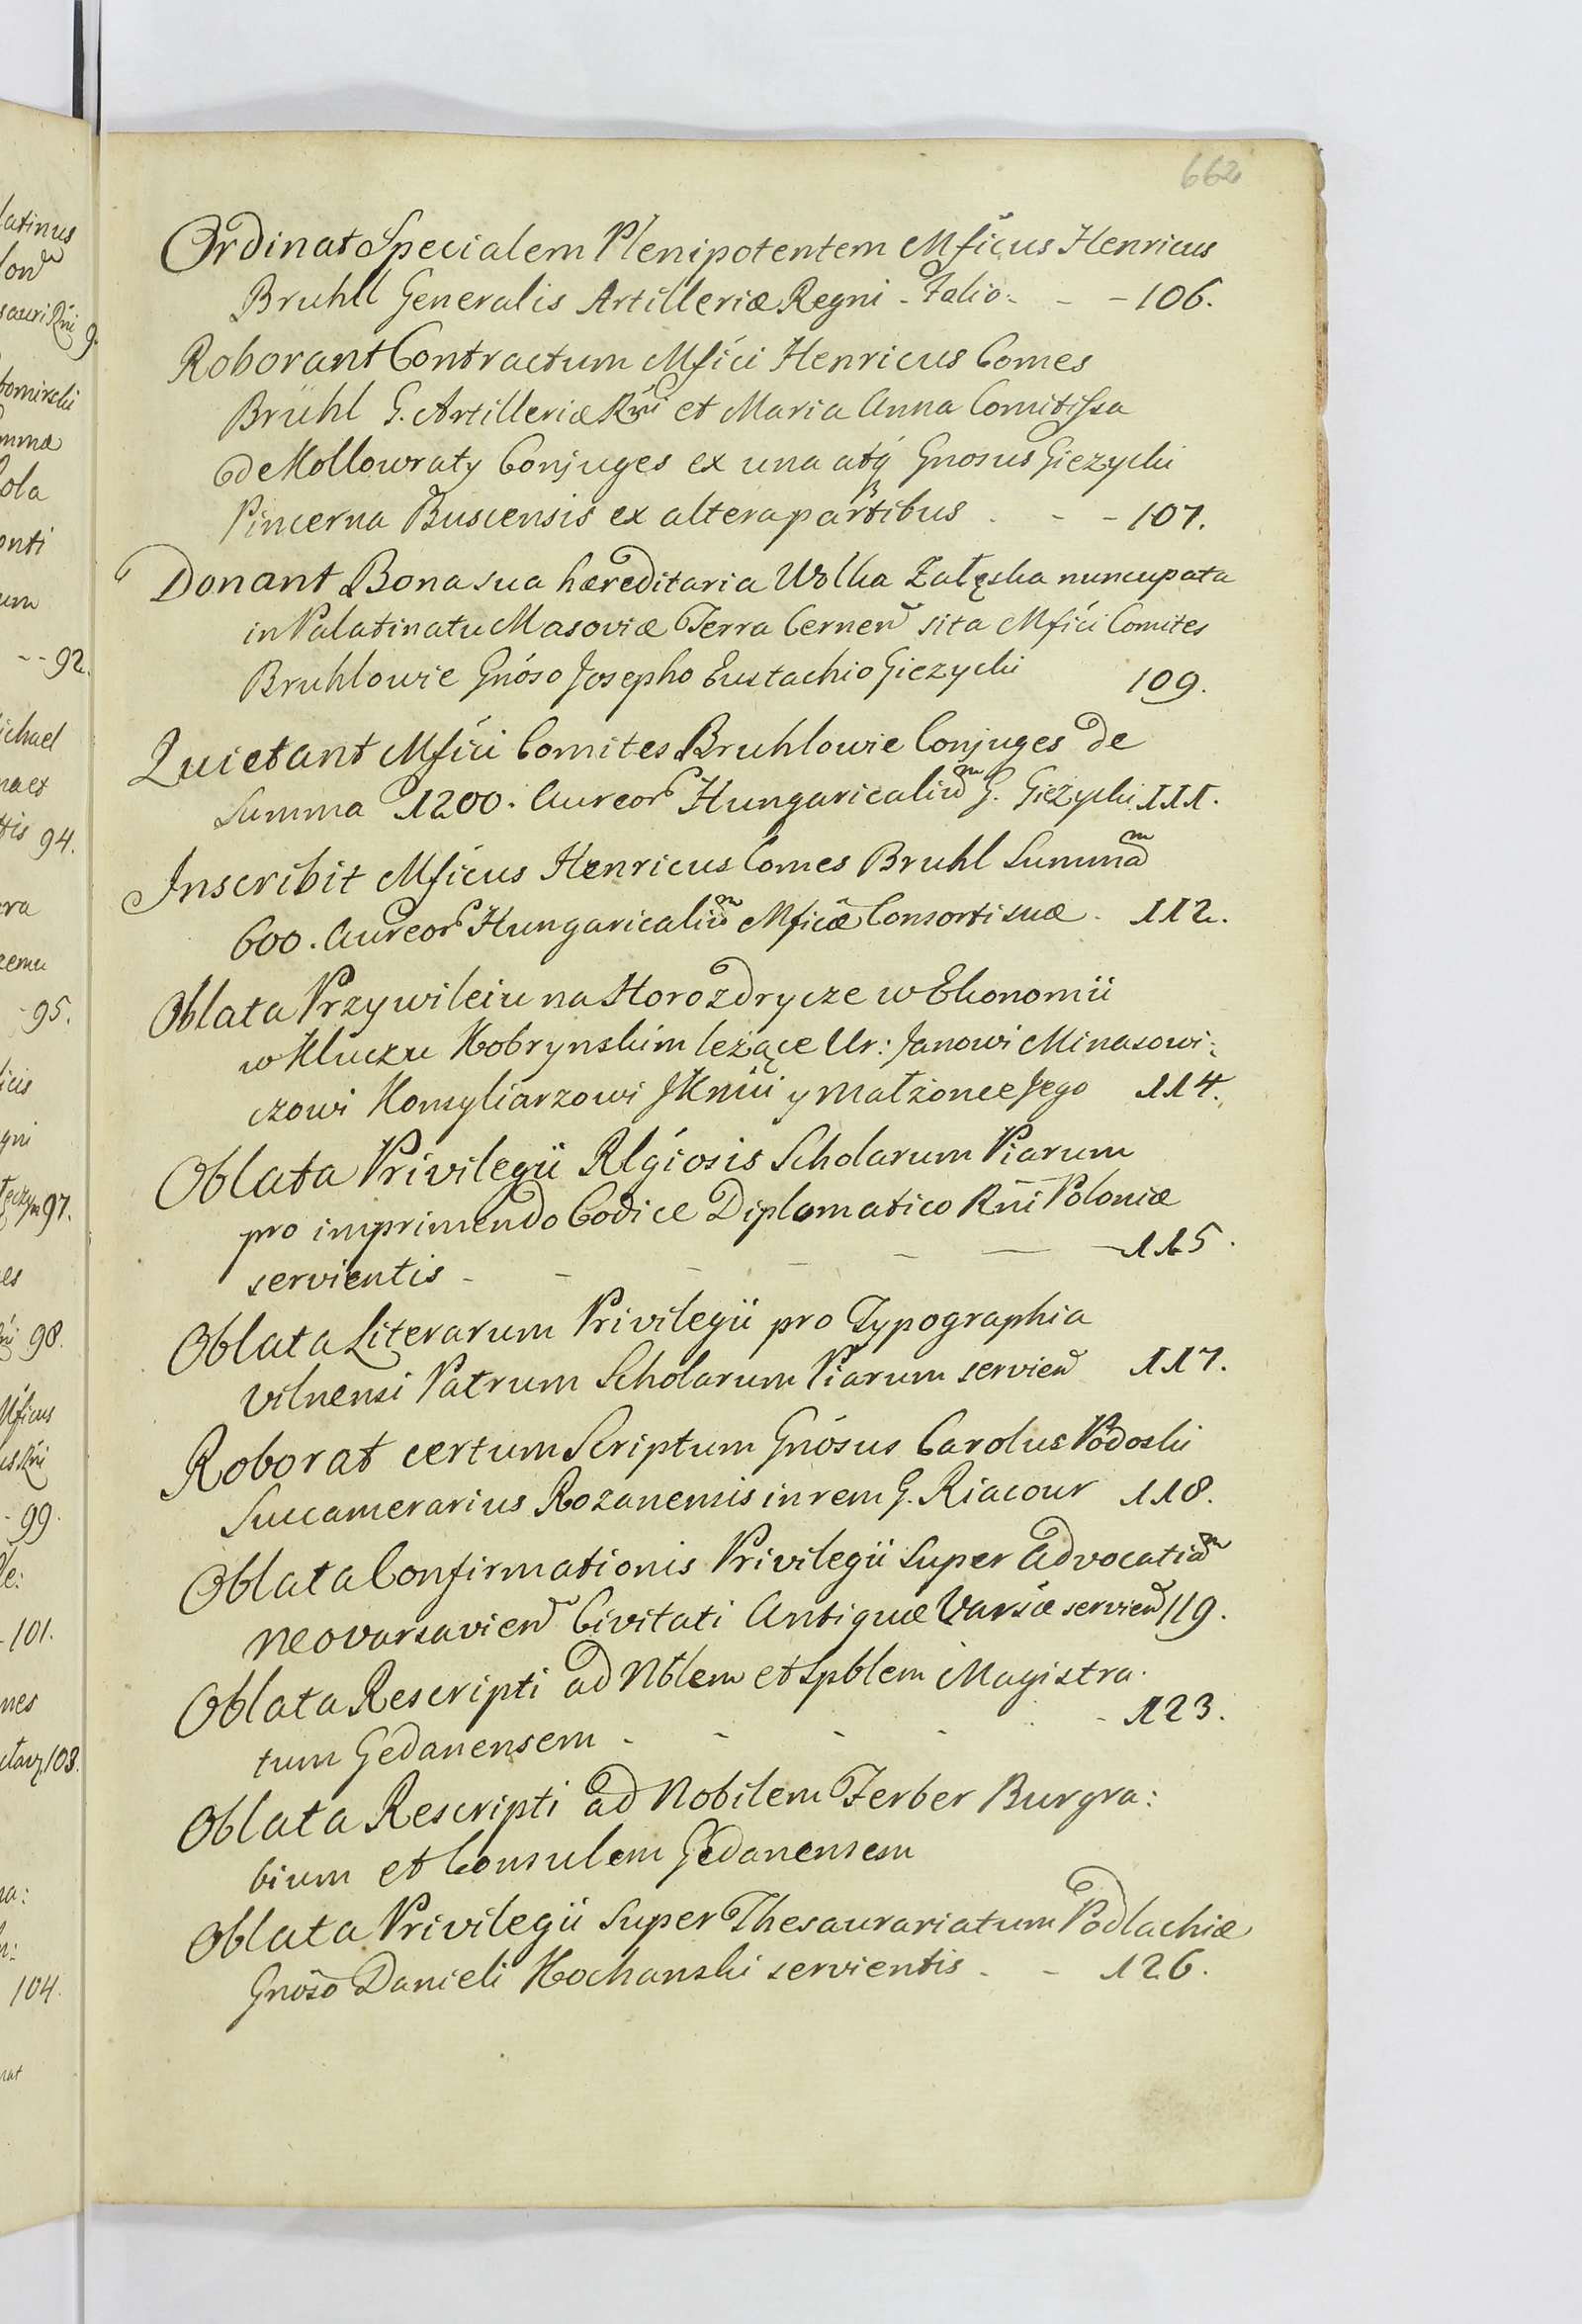 662
Ordinat Specialem Plenipotentem Mficus Henricus
Bruhll Generalis Artilleriæ Regni - Folio - - - 106.
Roborant Contractum Mfici Henricus Comes
Brühl G. Artilleriæ Rni et Maria Anna Comitissa
de Kollowraty Conjuges ex una atq Gnosus Giezycki
Pincerna Buscensis ex altera partibus - - - 107.
Donant Bona sua hæreditaria Wolka Załęska nuncupata
in Palatinatu Masoviæ Terra Cernen sita Mfici Comites
Bruhlowie Gnoso Josepho Eustachio Giezycki 109.
Quietant Mfici Comites Bruhlowie Conjuges de
Summa 1200. Aureor Hungaricaliu G. Giezycki 111.
Inscribit Mficus Henricus Comes Bruhl Summa
600. Aureor Hungaricaliu Mficæ Consorti suæ - 112.
Oblata Przywileiu na Horozdrycze w Ekonomii
w Kluczu Kobrynskim leżące Ur: Janowi Minasowi:
czowi Konsyliarzowi JKmci y Małżonce Jego 114.
Oblata Privilegii Rlgiosis Scholarum Piarum
pro imprimendo Codice Diplomatico Rni Poloniæ
servientis - - - - - - 115.
Oblata Literarum Privilegii pro Typographia
Vilnensi Patrum Scholarum Piarum servien 117.
Roborat certum Scriptum Gnosus Carolus Podoski
Succamerarius Rozanensis in rem G. Riacour 118.
Oblata Confirmationis Privilegii super Advocatia
Neovarsavien Civitati Antiquæ Varsiæ servien 119.
Oblata Rescripti ad Nblem et Spblem Magistra-
tum Gedanensem - - - - - 123.
Oblata Rescripti ad Nobilem Ferber Burgra:
bium et Consulem Gedanensem
Oblata Privilegii super Thesaurariatum Podlachiæ
Gnoso Danieli Kochanski servientis - - 126.